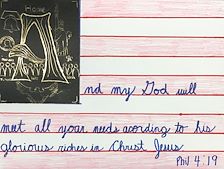 Home
A
nd my God will
meet all your needs acording to his
glorious riches in Christ Jesus
Phil 4:19